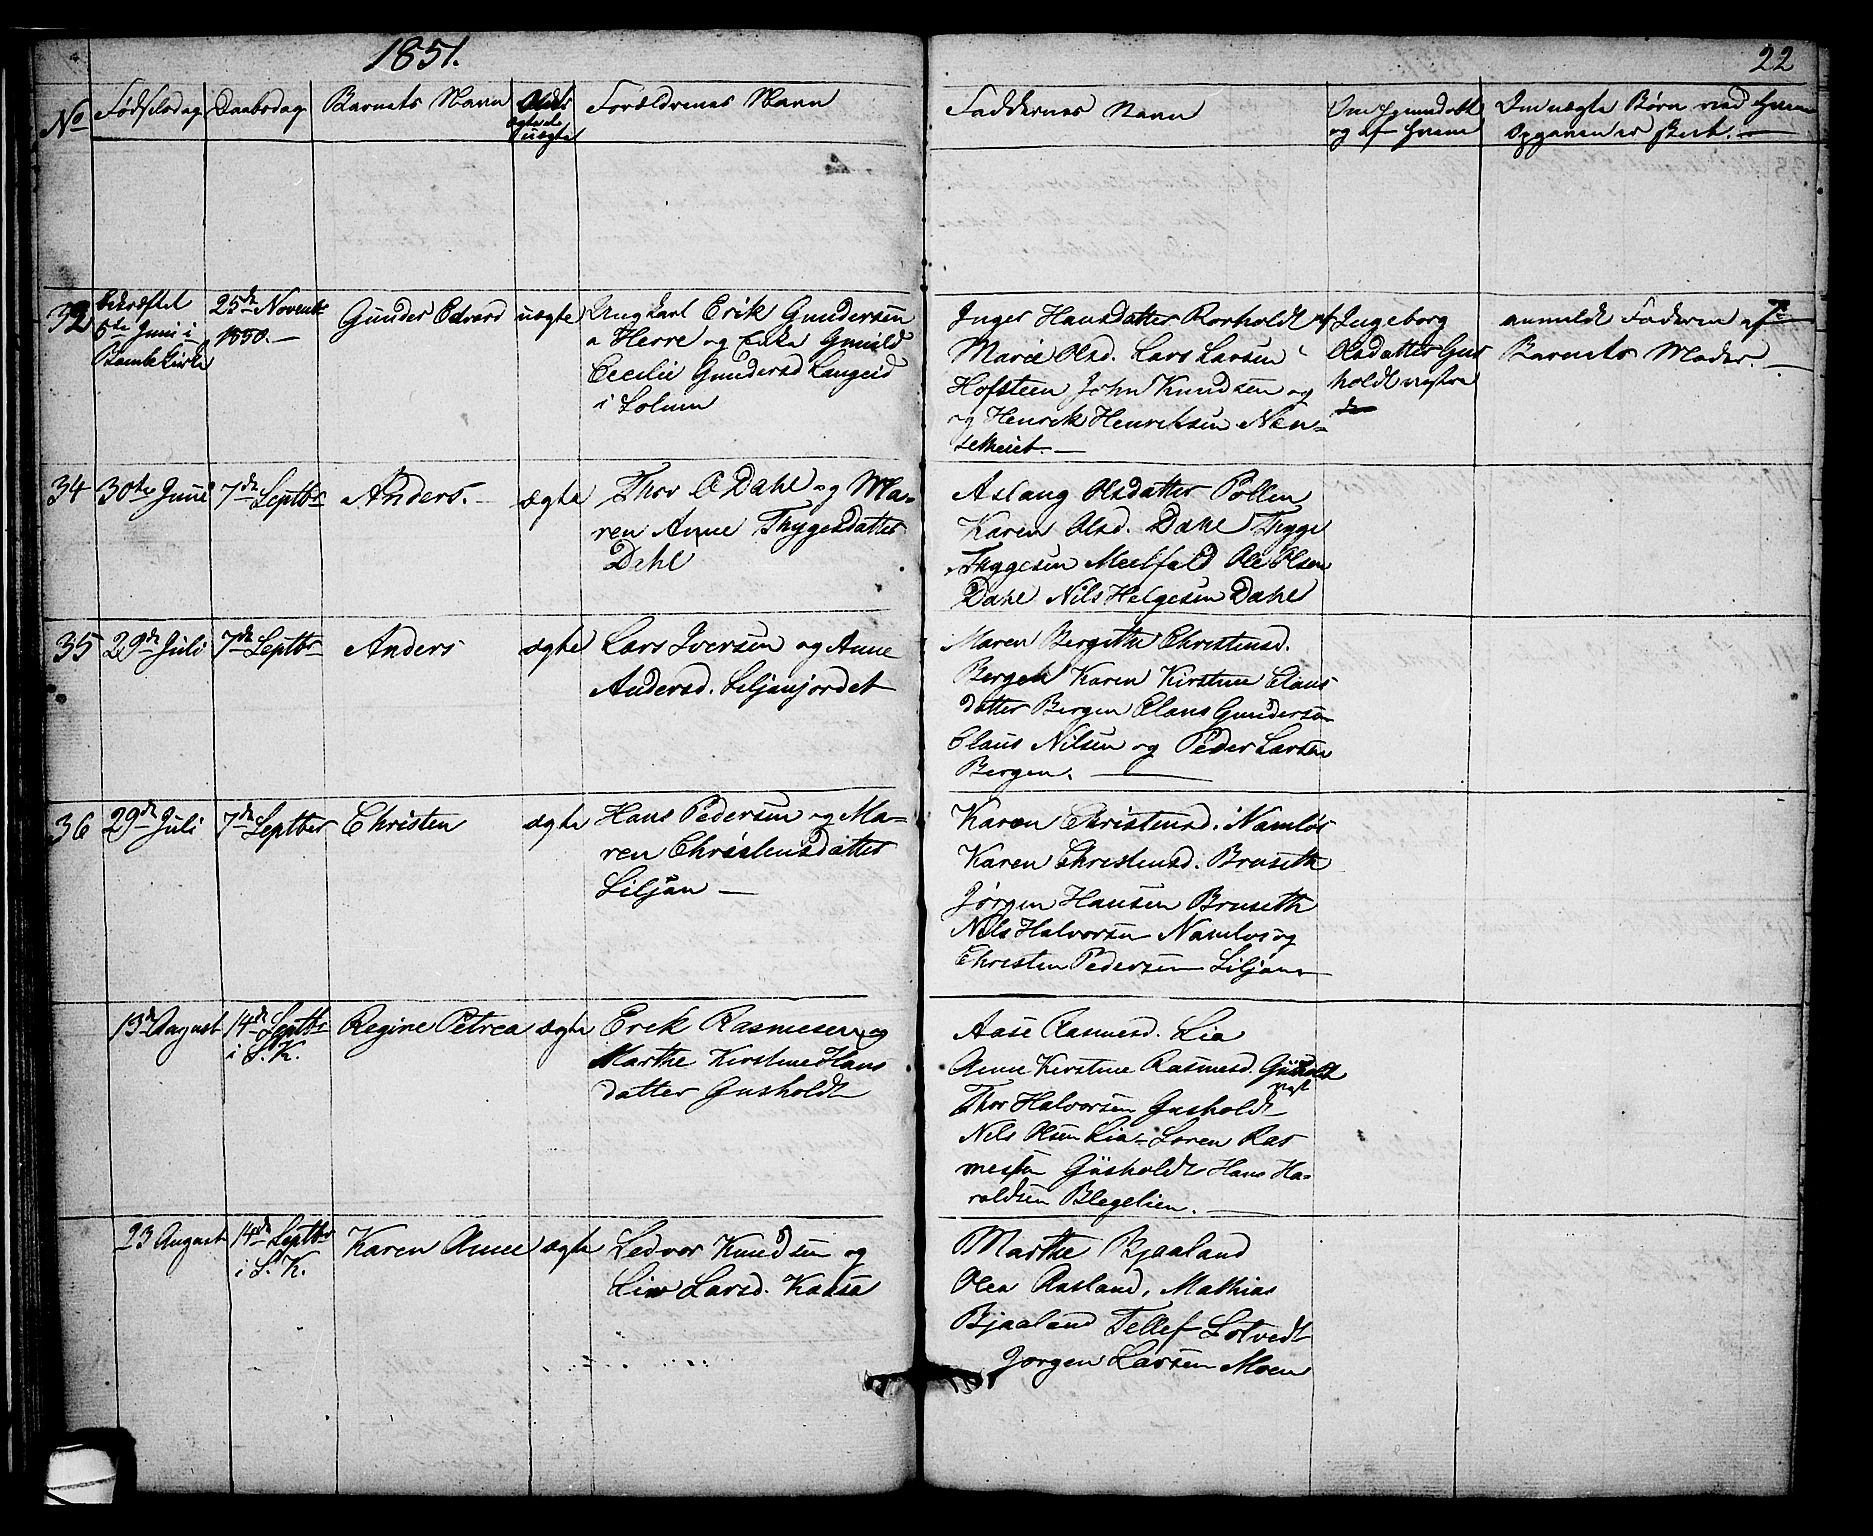 1851.
22
No
Fødselsdag
Daabsdag
Barnets Navn
ægte el. uægte
Forældrenes Navn
Faddernes Navn
Om hjemedøbt og af hvem
Om uægte Børn ved hvem Opgaven er skeet. —
32
bekræftet
6te Juni i
Bamle Kirke
25de Novembr
1850. —
Gunder Edvard
uægte
Ungkarl Erik Gundersen
a Herre og Enke Gunild
Cecilie Gundersd Langeid
i Solum
Inger Hansdatter Rorholdt
Marie Olsd. Lars Larsen
Hofsteen John Knudsen og
og Henrik Henriksen Nen-
seth
af Ingeborg
Olsdatter Gus
holdt vestre
anmeldt Faderen af
Barnets Moder. —
34
30te Juni
7de Septbr
Anders. —
ægte
Thor O Dahl og Ma-
ren Anne Thygesdatter
Dahl
Aslaug Olsdatter Pollen
Karen Olsd. Dahl Thyge
Thygesen Meelfald Ole Olsen
Dahl Nils Helgesen Dahl
35
29de Juli
7de Septbr
Anders
ægte
Lars Iversen og Anne
Andersd. Liljanjordet
Maren Bergithe Christensd.
Bergen Karen Kirstine Claus
datter Bergen Claus Gundersen
Claus Nilsen og Peder Larsen
Bergen. —
36
29de Juli
7de Septber
Christen
ægte
Hans Pedersen og Ma-
ren Christensdatter
Liljan —
Karen Christensd. Namløs
Karen Christensd. Bruseth
Jørgen Hansen Bruseth
Nils Halvorsen Namløs og
Christen Pedersen Liljan
13de August
14de Septbr
i S. K.
Regine Petrea
ægte
Erik Rasmesen og
Marthe Kirstine Hans
datter Gusholdt
Aase Rasmesd. Lia
Anne Kirstine Rasmesd. Gusholdt
vest
Thor Halvorsen Gusholdt
Nils Olsen Lia Soren Ras
mesen Gusholdt Hans Ha-
raldsen Blegelien. —
23 August
14de Septbr
i S. K.
Karen Anne
ægte
Ledvor Knudsen og
Liv Larsd. Kaasa
Marthe Bjaaland
Olea Aasland, Mathias
Bjaaland Tellef Lotvedt
Jorgen Larsen Moen